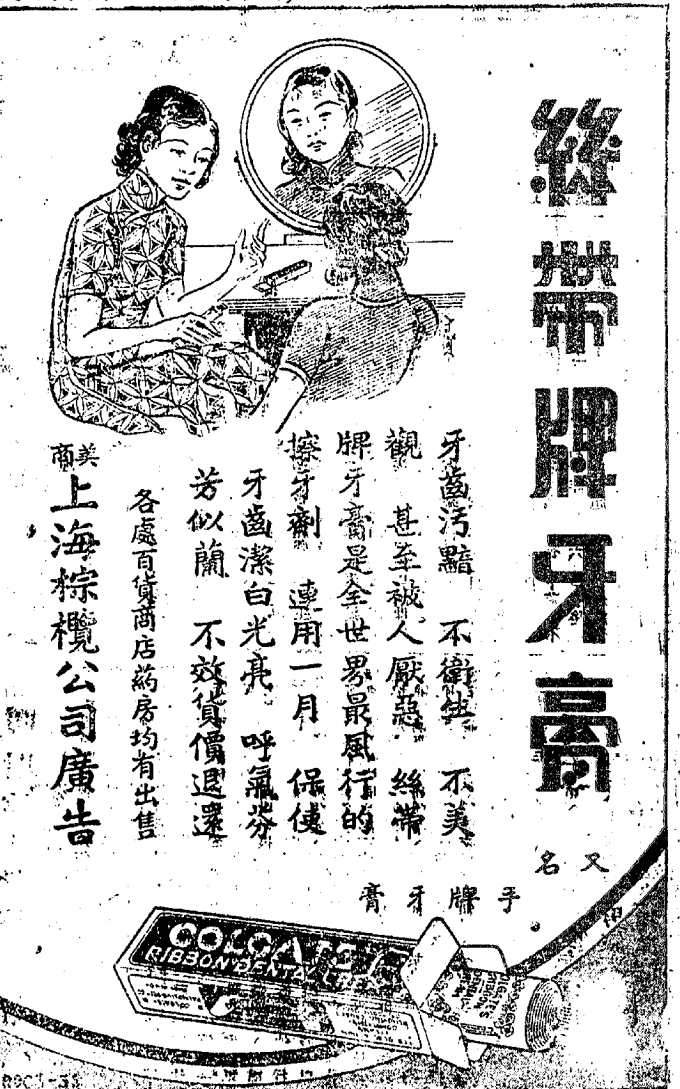 絲帶牌牙膏
又名
手牌牙膏
牙齒污黯 不衛生 不美
觀 甚至被人厭惡 絲帶
牌牙膏是全世界最風行的
擦牙劑 連用一月 保使
牙齒潔白光亮 呼氣芬
芳似蘭 不效貨價退還
各處百貨商店葯房均有出售
美商
上海棕欖公司廣告
RIBBON DENTAL CREAM